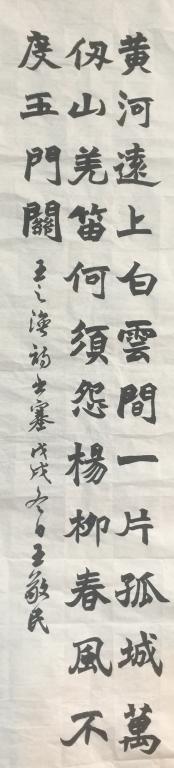 黄河遠上白雲間一片孤城萬
仞山羌笛何須怨楊柳春風不
度玉門關
王之渙詩出塞戊戌冬日王敬民